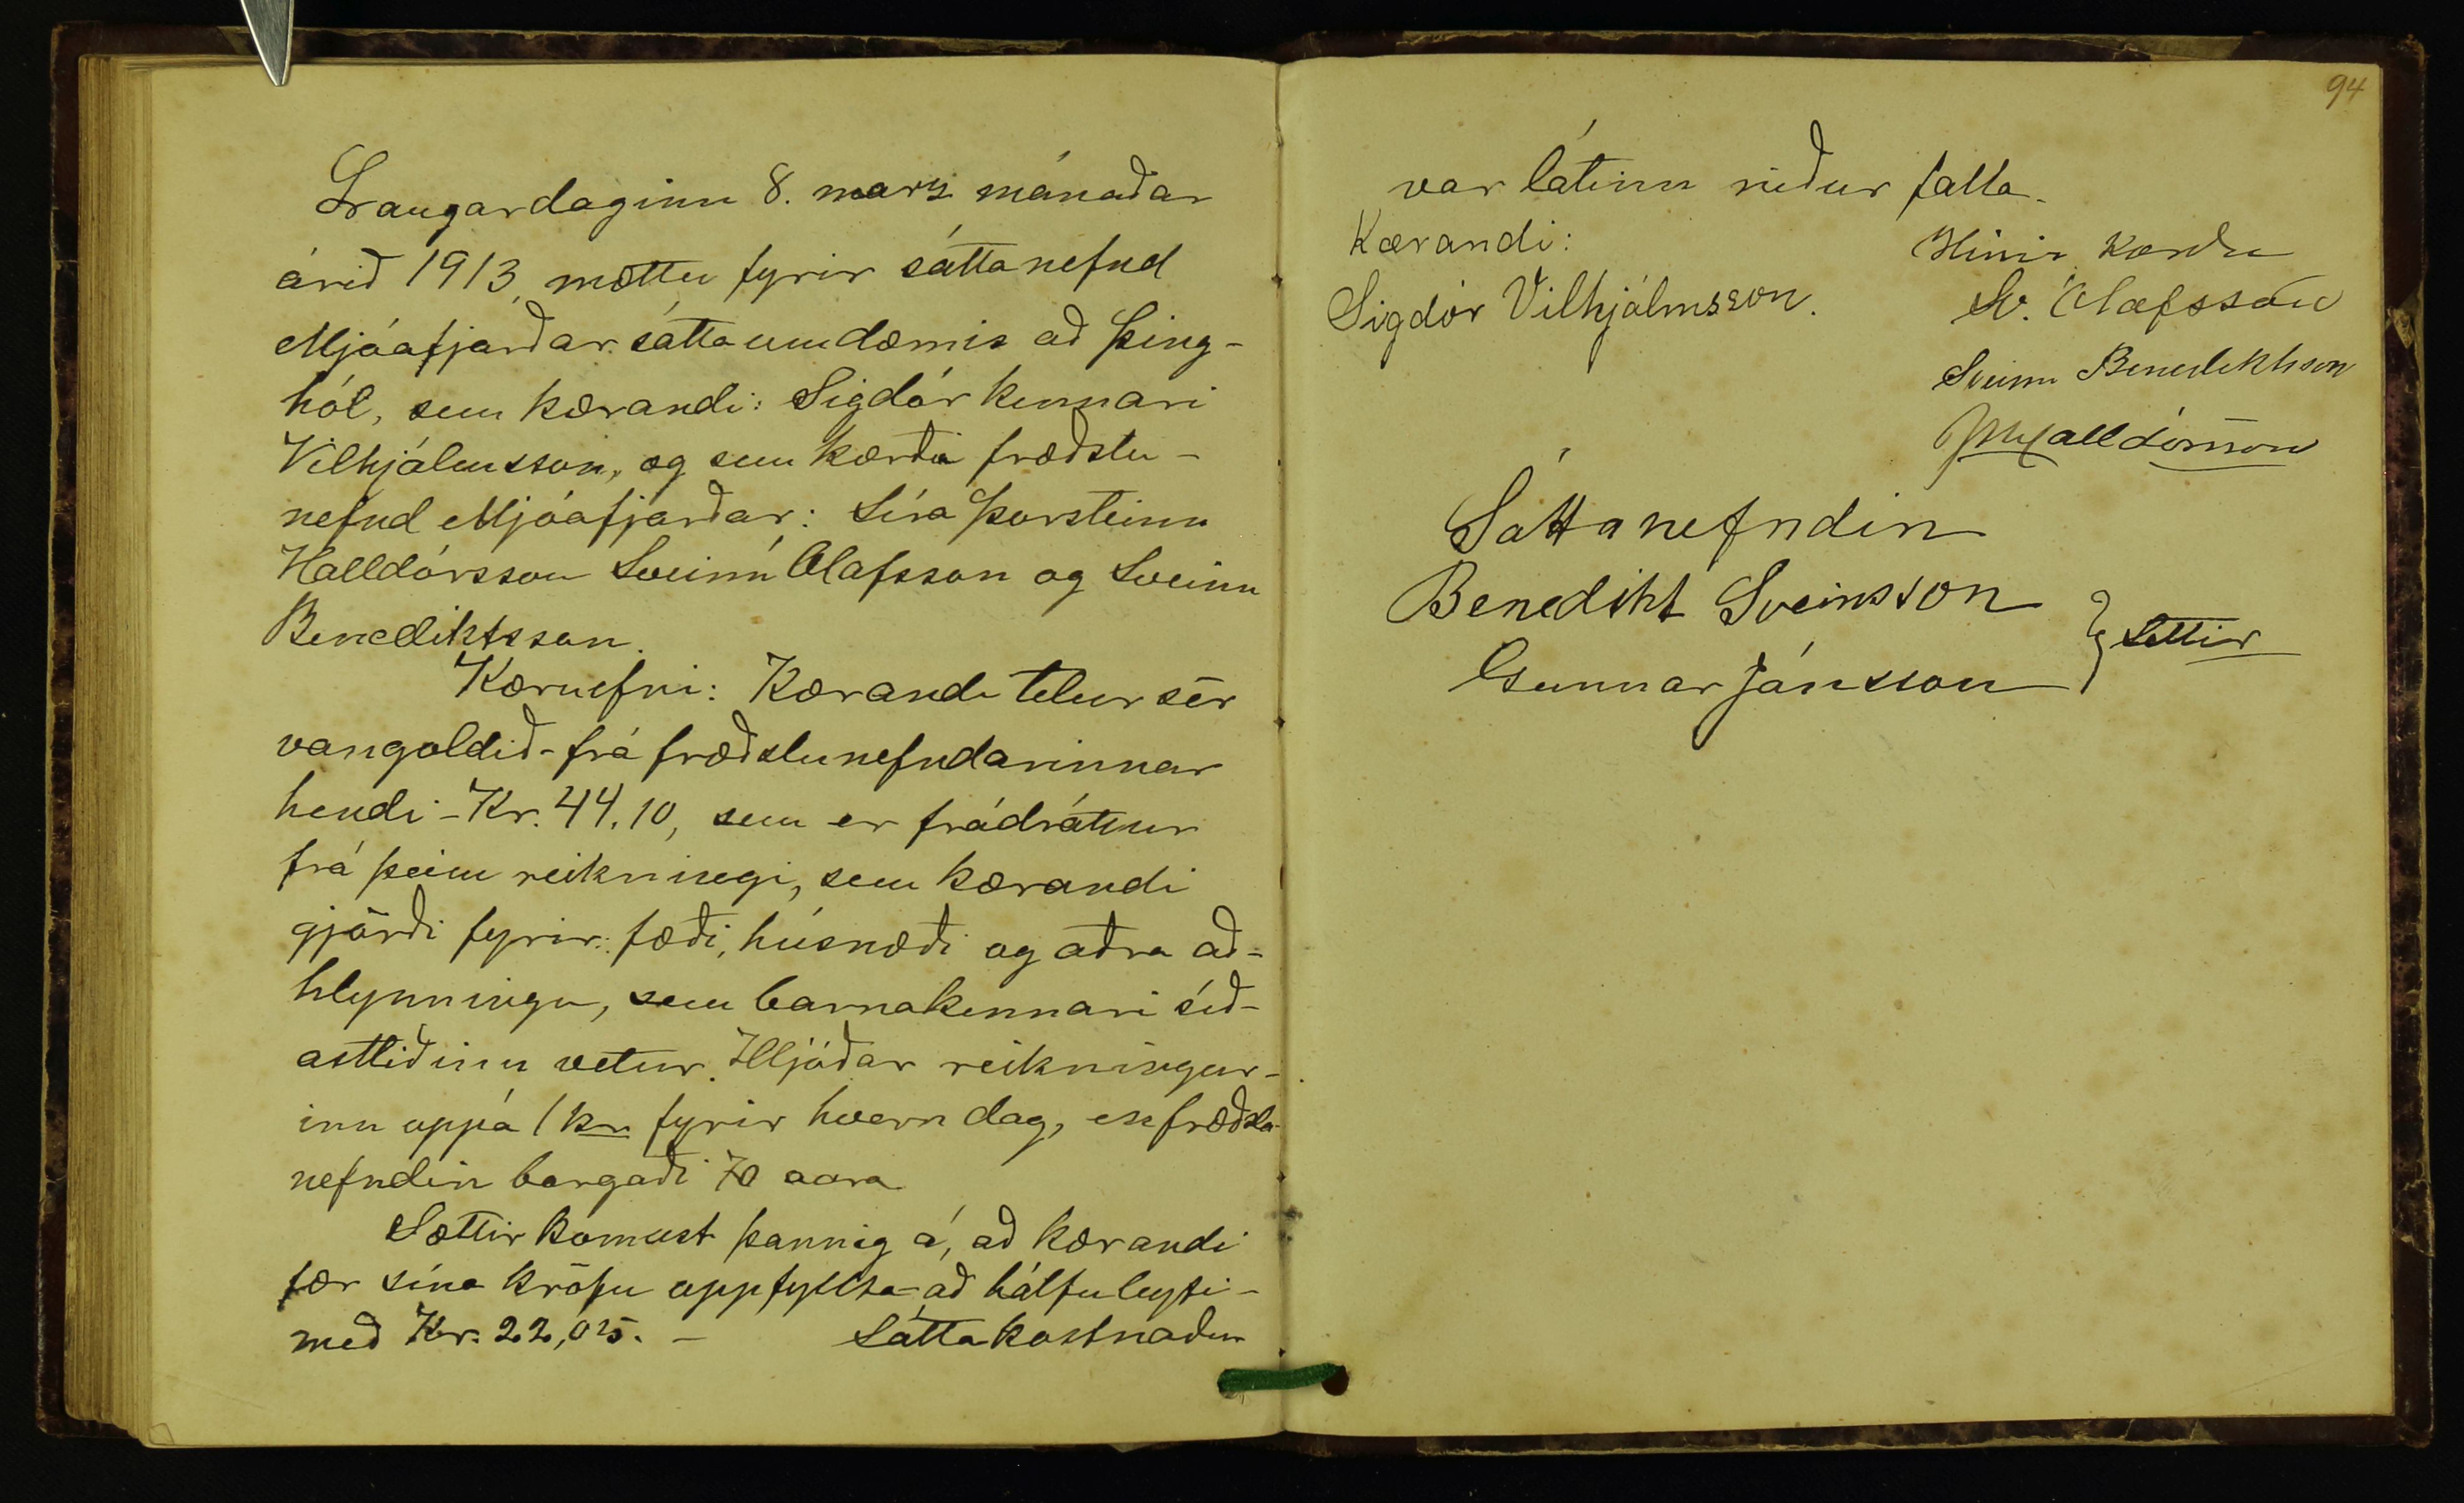 Laugardaginn 8. marz mánaðar
árið 1913, mættu fyrir sáttanefnd
Mjóafjarðar sáttaumdæmis að Þing-
hól, sem kærandi: Sigdór kennari
Vilhjálmsson, og sem kærða fræðslu-
nefnd Mjóafjarðar: Síra Þorsteinn
Halldórsson Sveinn Ólafsson og Sveinn
Benediktsson.
Kæruefni: Kærandi telur sér
vangoldið - frá fræðslunefndarinnar
hendi - Kr. 44.10, sem er frádráttur
frá þeim reikningi, sem kærandi
gjörði fyrir: fæði, húsnæði og aðra að-
hlynningu, sem barnakennari síð-
astliðinn vetur. Hljóðar reikningur-
inn uppá 1 kr. fyrir hvern dag, en fræðslu-
nefndin borgaði 70 aura
Sættir komust þannig á, að kærandi
fær sína kröfu uppfyllta - að hálfu leyti -
með Kr. 22,05. - Sáttakostnaður
94
var látinn niður falla.
Kærandi: Hinir kærðu
Sigdór Vilhjálmsson. Sv. Ólafsson
Sveinn Benediktsson
Halldórsson
Sáttanefndin
Benedikt Sveinsson
Gunnar Jónsson } Sættir